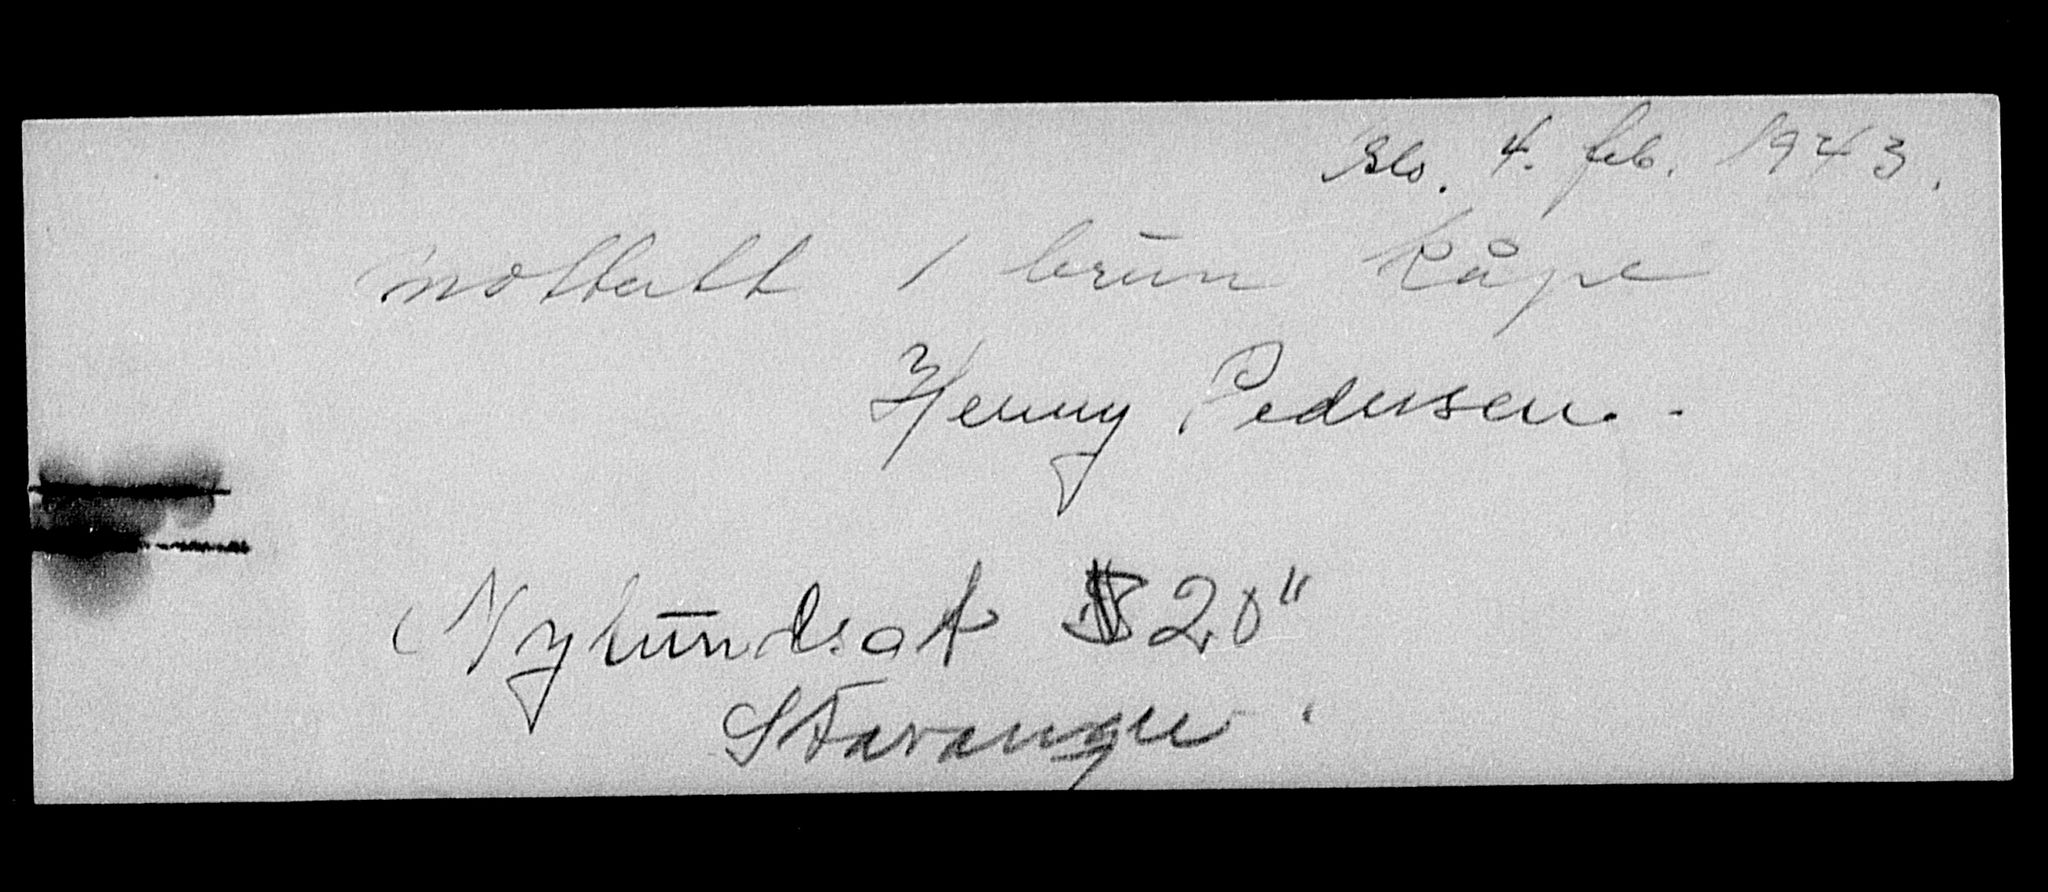 Oslo. 4. feb. 1943.
mottatt 1 brun kåpe
Henny Pedersen.
Nylundsgt 20"
Stavanger.